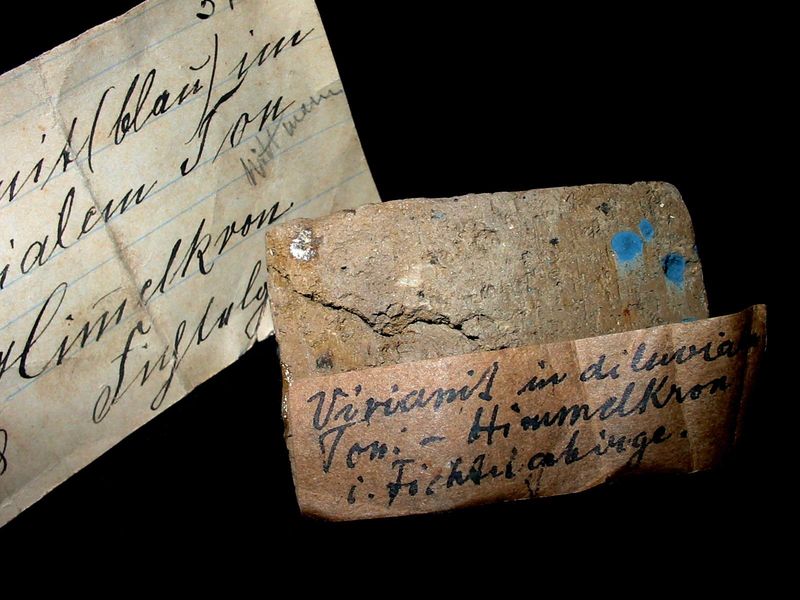 nit (blau) im
ialem Ton
Wittmann
Himmelkron
Fichtelg
Vivianit in diluvial
Ton. - Himmelkron
i. Fichtelgebirge.